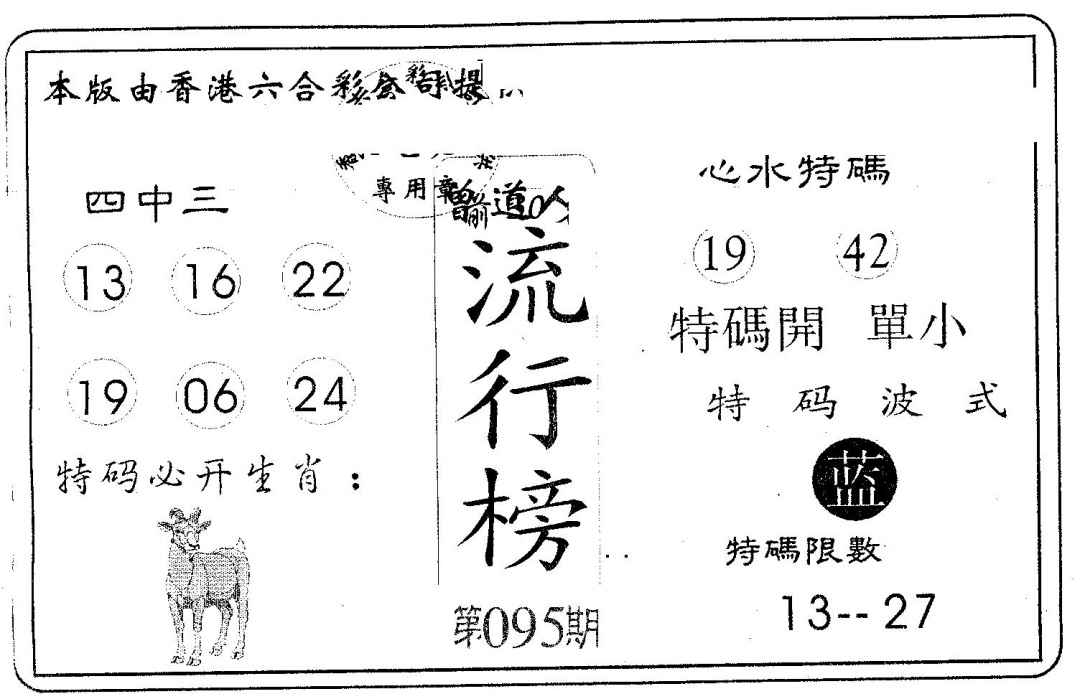 本版由香港六合彩公司提
專用章
四中三
13 16 22
19 06 24
特码必开生肖：
曾道人
流行榜
第095期
心水特碼
19 42
特碼開 單小
特码波式
蓝
特碼限數
13-- 27